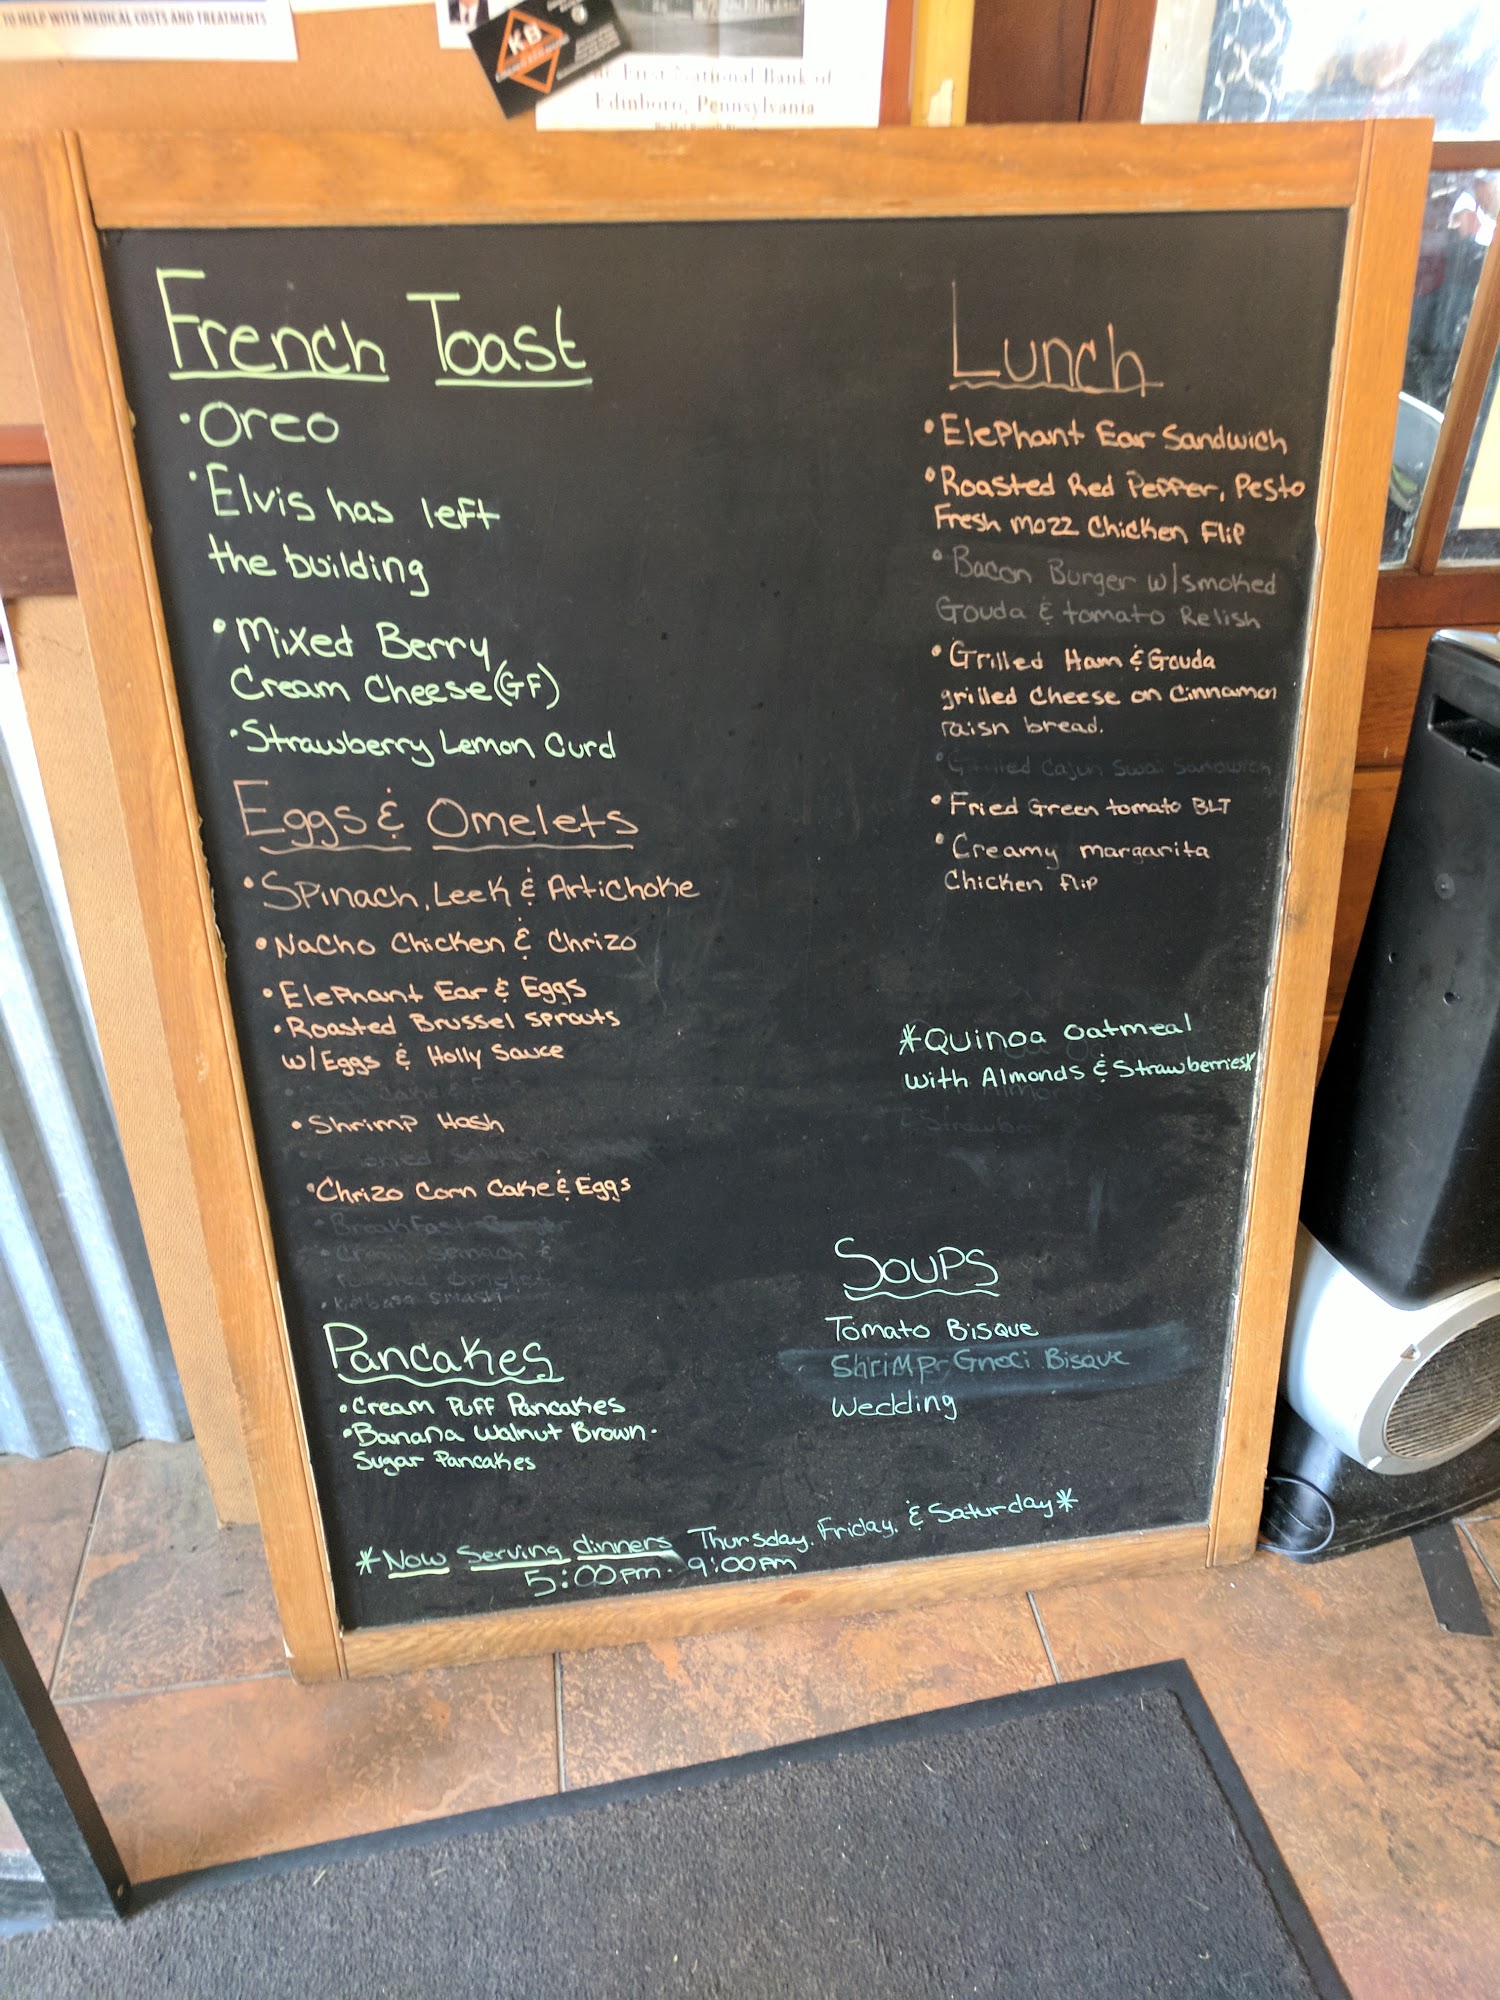 TO HELP WITH MEDICAL COSTS AND TREATMENTS
KB
The First National Bank of
Edinboro, Pennsylvania
French Toast
• Oreo
• Elvis has left
the building
• Mixed Berry
Cream Cheese (GF)
• Strawberry Lemon Curd
Eggs & Omelets
• Spinach, Leek & Artichoke
• Nacho Chicken & Chrizo
• Elephant Ear & Eggs
• Roasted Brussel sprouts
w/Eggs & Holly Sauce
• Shrimp Hash
• Chrizo Corn Cake & Eggs
• Breakfast Burger
• Kielbasa Smash
Pancakes
• Cream Puff Pancakes
• Banana Walnut Brown
Sugar Pancakes
Lunch
• Elephant Ear Sandwich
• Roasted Red Pepper, Pesto
Fresh mozz Chicken Flip
• Bacon Burger w/smoked
Gouda & tomato Relish
• Grilled Ham & Gouda
grilled Cheese on Cinnamon
raisn bread.
• Grilled Cajun Swai Sandwich
• Fried Green tomato BLT
• Creamy margarita
Chicken flip
*Quinoa Oatmeal
with Almonds & Strawberries*
Soups
Tomato Bisque
Shrimp Gnoci Bisque
Wedding
*Now Serving dinners Thursday, Friday, & Saturday*
5:00pm - 9:00pm